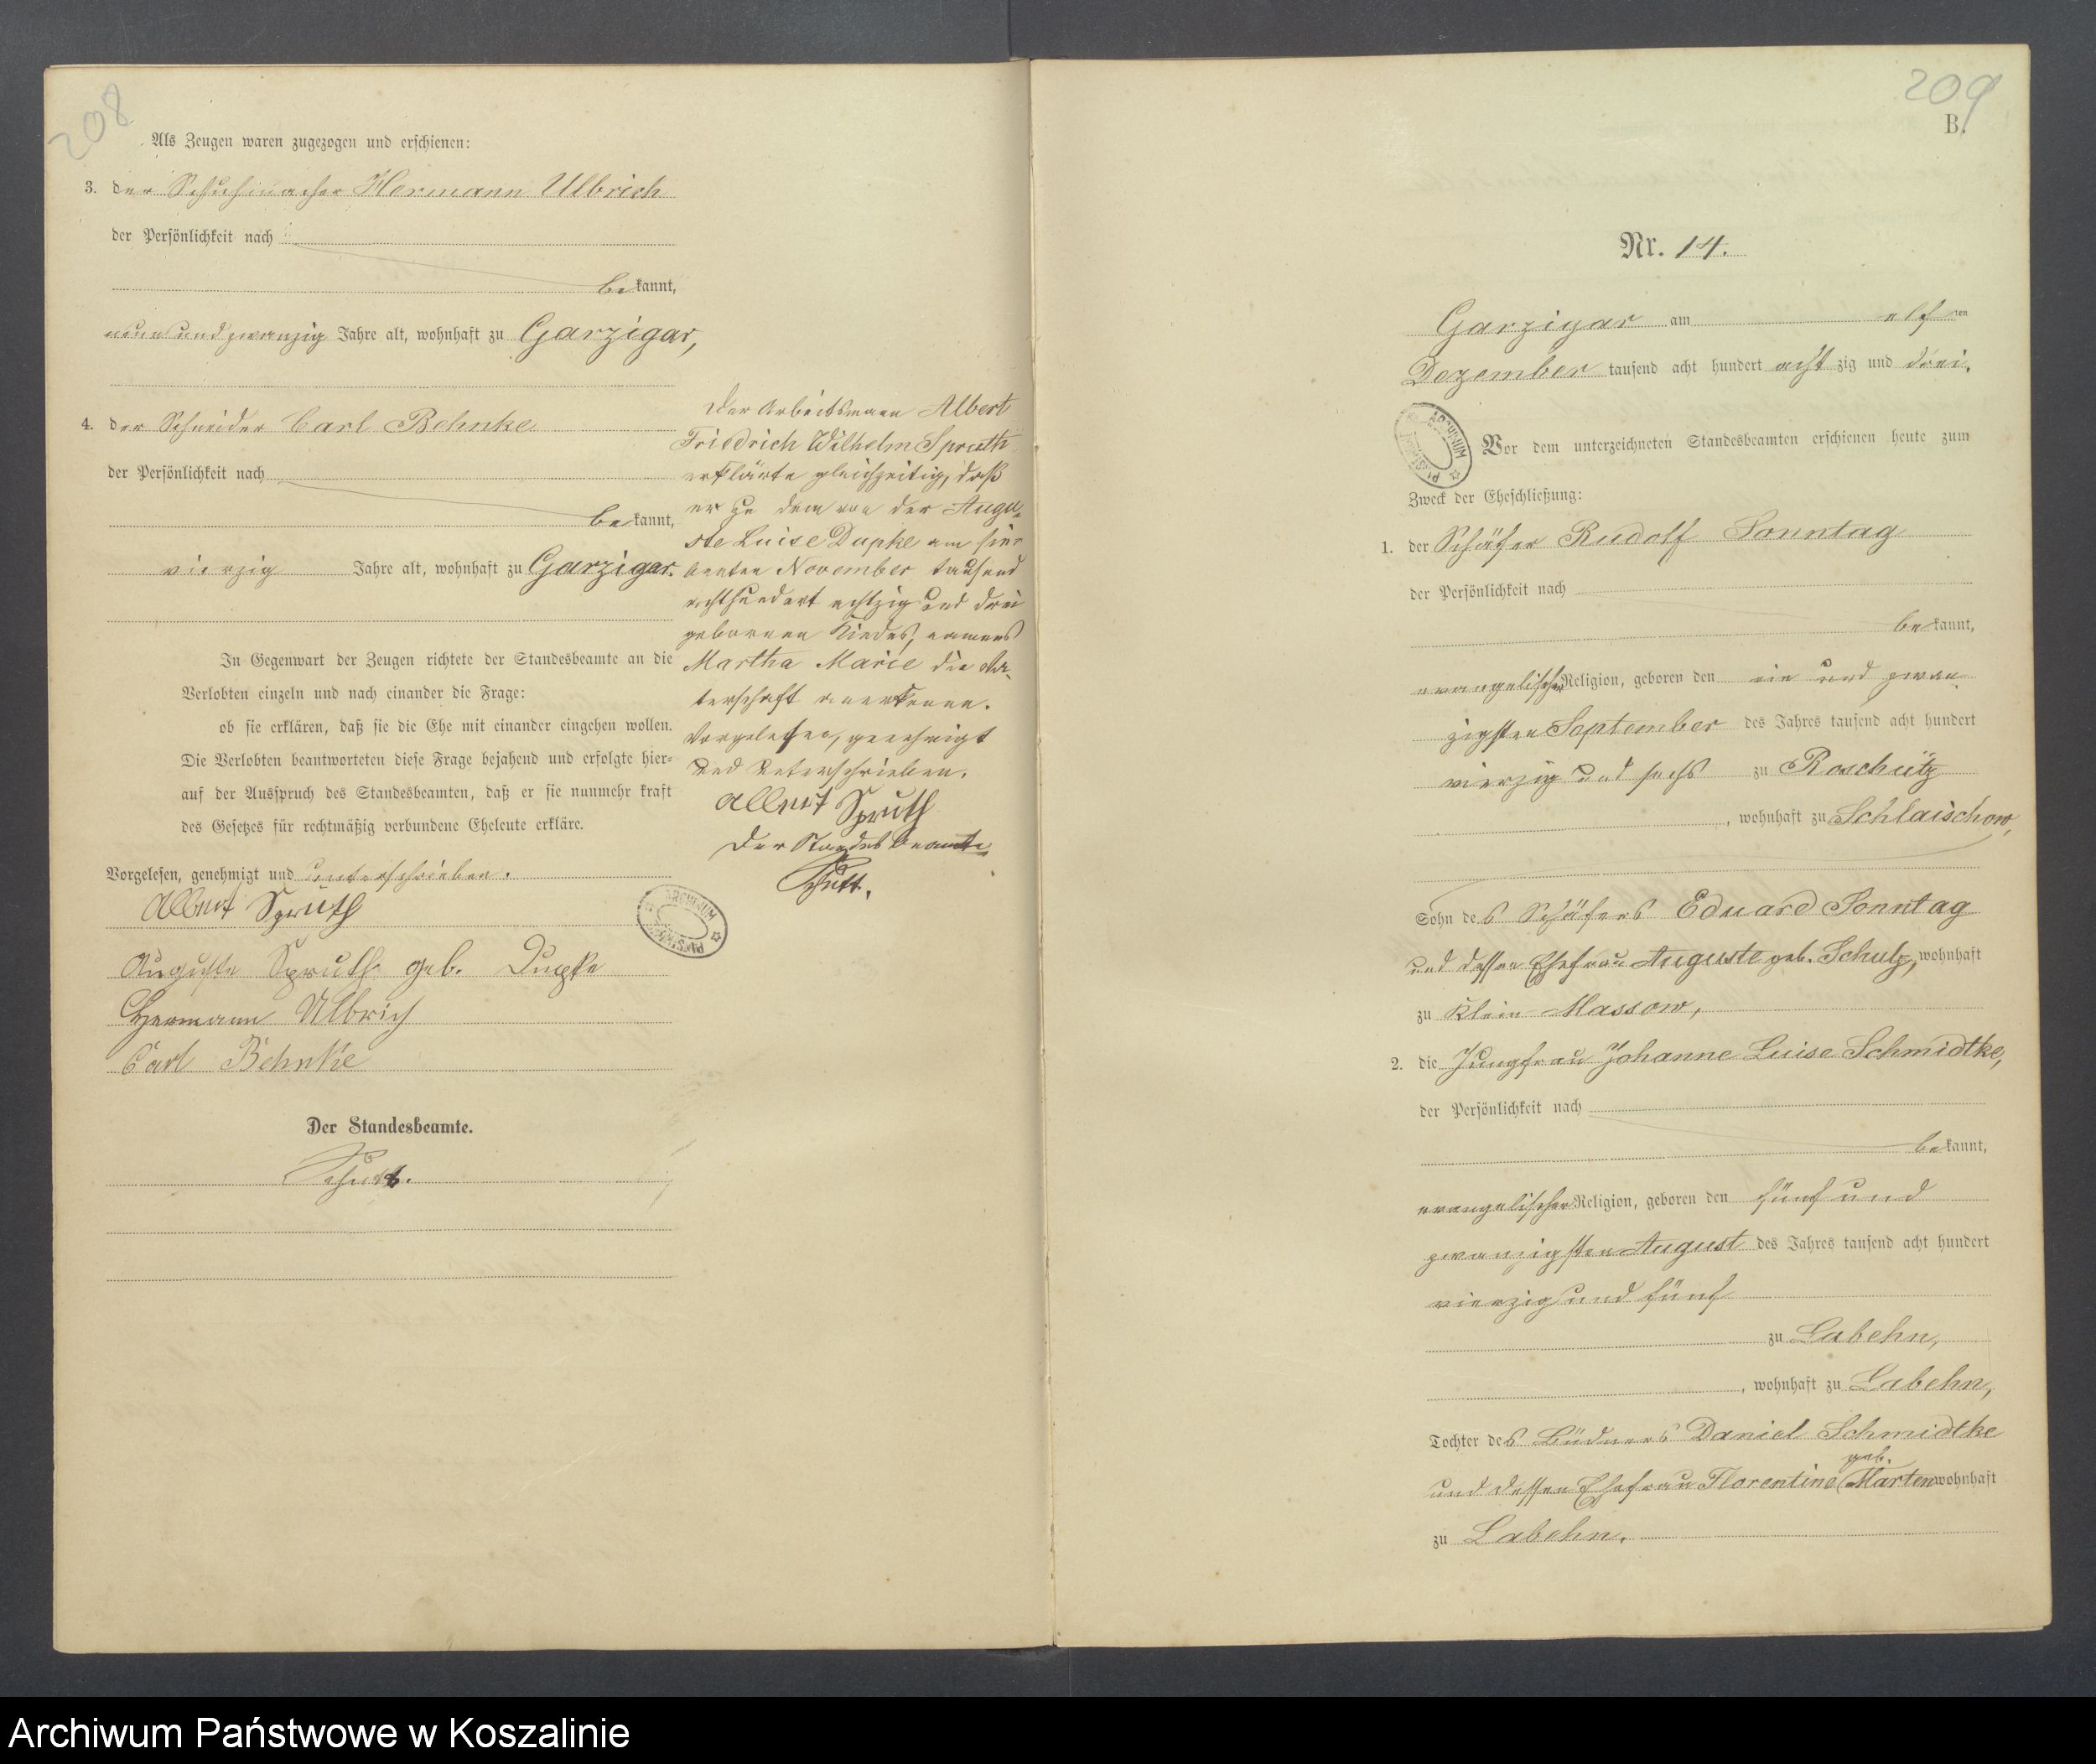 208
Als Zeugen waren zugezogen und erschienen:
3. der Schuhmacher Hermann Ulbrich
der Persönlichkeit nach
bekannt,
neun und zwanzig Jahre alt, wohnhaft zu Garzigar,
4. der Schneider Carl Behnke
der Persönlichkeit nach
bekannt,
vierzig Jahre alt, wohnhaft zu Garzigar.
In Gegenwart der Zeugen richtete der Standesbeamte an die
Verlobten einzeln und nach einander die Frage:
ob sie erklären, daß sie die Ehe mit einander eingehen wollen.
Die Verlobten beantworteten diese Frage bejahend und erfolgte hier-
auf der Ausspruch des Standesbeamten, daß er sie nunmehr kraft
des Gesetzes für rechtmäßig verbundene Eheleute erkläre.
Vorgelesen, genehmigt und unterschrieben.
Albert Spruth
Auguste Spruth geb. Dupke
Hermann Ulbrich
Carl Behnke
Der Standesbeamte.
Der Arbeitsmann Albert
Friedrich Wilhelm Spruth
erklärte gleichzeitig, daß
er zu dem von der Augu-
ste Luise Dupke am sie-
benten November tausend
achthundert achtzig und drei
geborenen Kindes, namens
Martha Marie die Va-
terschaft anerkenne.
Vorgelesen, genehmigt
und unterschrieben.
Albert Spruth
Der Standesbeamte
ARCHIWUM
209
B.
Nr. 14.
Garzigar am elf ten
Dezember tausend acht hundert acht zig und drei.
ARCHIWUM
Vor dem unterzeichneten Standesbeamten erschienen heute zum
Zweck der Eheschließung:
1. der Schäfer Rudolf Sonntag
der Persönlichkeit nach
bekannt,
evangelischer Religion, geboren den ein und zwan
zigsten September des Jahres tausend acht hundert
vierzig und sechs zu Roschütz
, wohnhaft zu Schlaischow,
Sohn des Schäfers Eduard Sonntag
und dessen Ehefrau Auguste geb. Schulz, wohnhaft
zu Klein Massow,
2. die Jungfrau Johanne Luise Schmidtke,
der Persönlichkeit nach
bekannt,
evangelischer Religion, geboren den fünf und
zwanzigsten August des Jahres tausend acht hundert
vierzig und fünf
zu Labehn,
, wohnhaft zu Labehn,
Tochter des Büdners Daniel Schmidtke
geb.
und dessen Ehefrau Florentine Marten wohnhaft
zu Labehn.
Archiwum Państwowe w Koszalinie